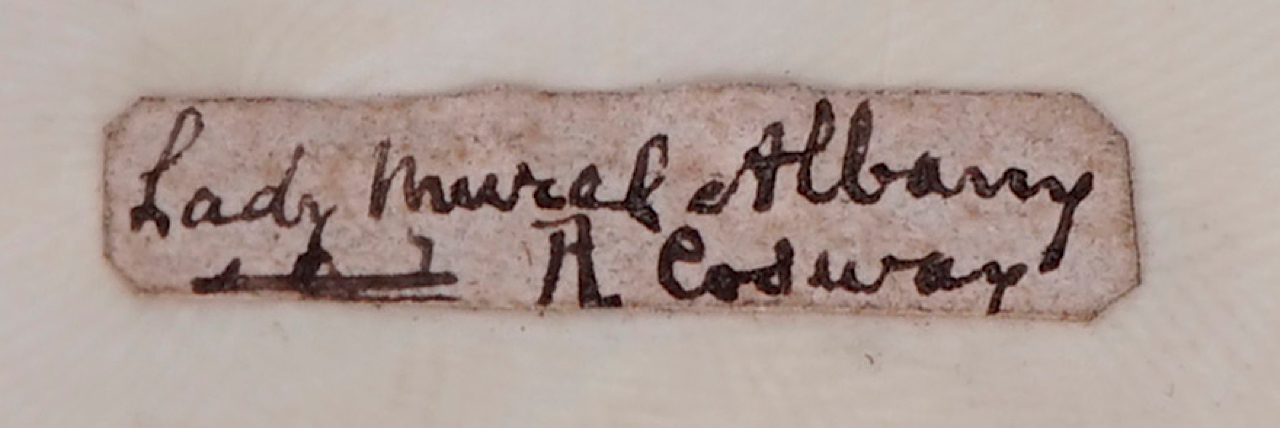 Lady Murek Albany
R Cosway